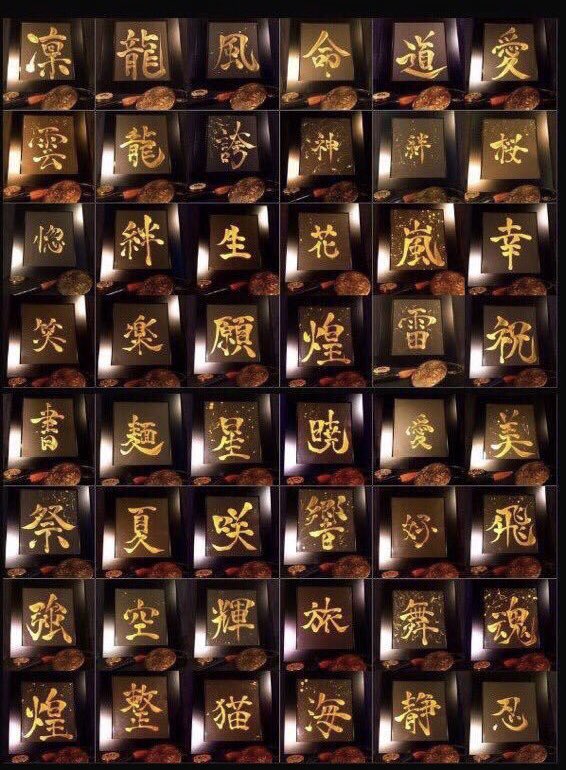 凛龍風命道愛
雲龍誇神絆桜
惚絆生花嵐幸
笑楽願煌雷祝
書麺星暁愛美
祭夏咲響好飛
強空輝旅舞魂
煌整猫海静忍